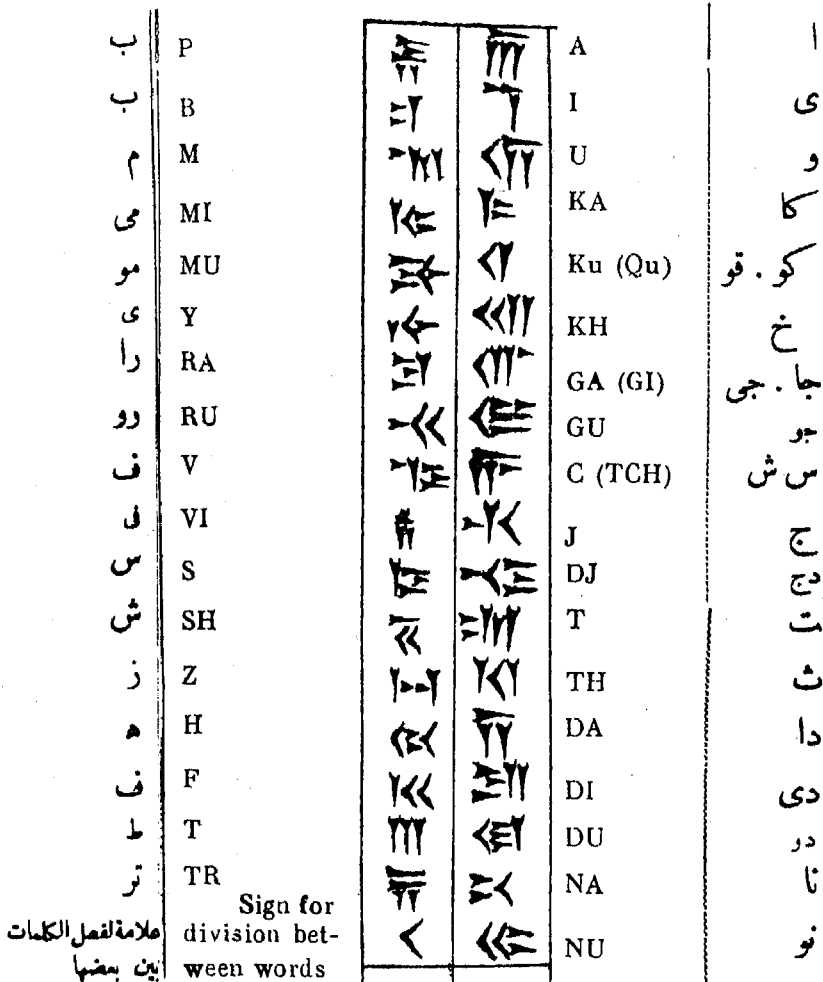 ب P 𐎱 𐎠 A ا
ب B 𐎲 𐎡 I ى
م M 𐎶 𐎢 U و
مى MI 𐎷 𐎣 KA كا
مو MU 𐎸 𐎤 Ku (Qu) كو . قو
ى Y 𐎹 𐎧 KH خ
را RA 𐎼 𐎥 GA (GI) جا . جى
رو RU 𐎽 𐎦 GU جو
ف V 𐎺 𐎨 C (TCH) س ش
فى VI 𐎻 𐎩 J ج
س S 𐎿 𐎪 DJ دج
ش SH 𐏁 𐎫 T ت
ز Z 𐏀 𐎰 TH ث
ه H 𐏃 𐎭 DA دا
ف F 𐎳 𐎮 DI دى
ط T 𐎬 𐎯 DU دو
تر TR 𐏂 𐎴 NA نا
Sign for
علامة لفصل الكلمات division bet- 𐏐 𐎵 NU نو
بين بعضها ween words